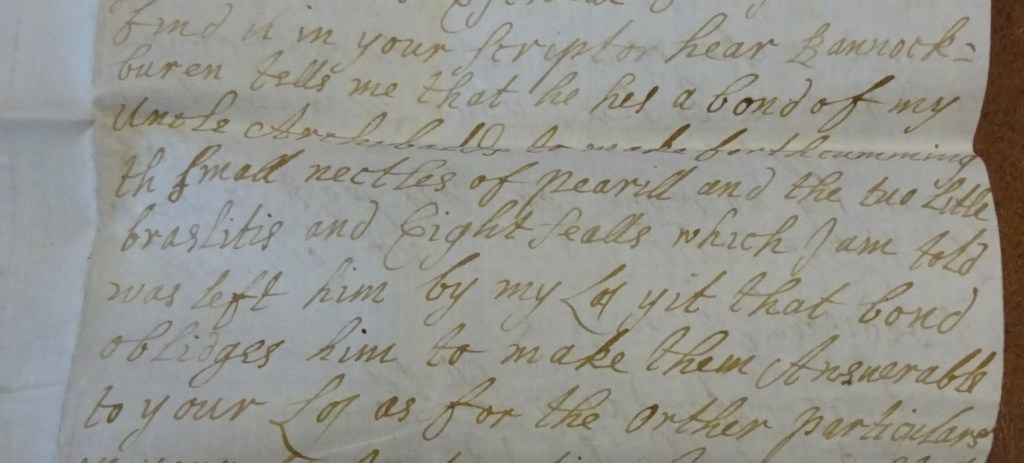 find it in your scriptor hear Bannock=
buren tells me that he hes a bond of my
Uncle Archebalds to make forthcumming
th small nectles of pearill and the tuo litle
braslitis and Eight sealls which I am told
was left him by my Lo/ yit that bond
oblidges him to make them Answerable
to your Lo/ as for the orther particulars